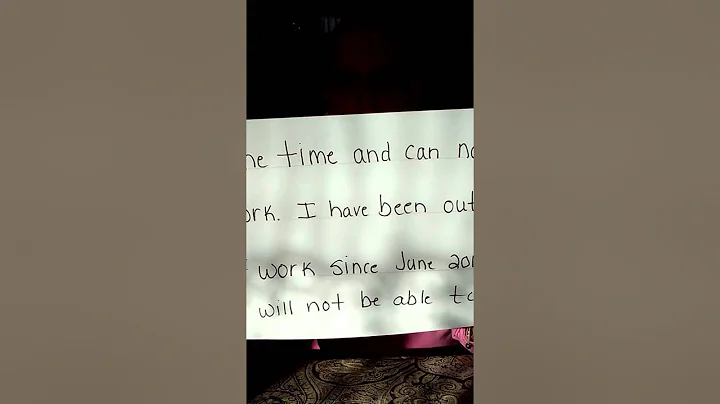 he time and can no
ork. I have been out
work since June 201
will not be able to